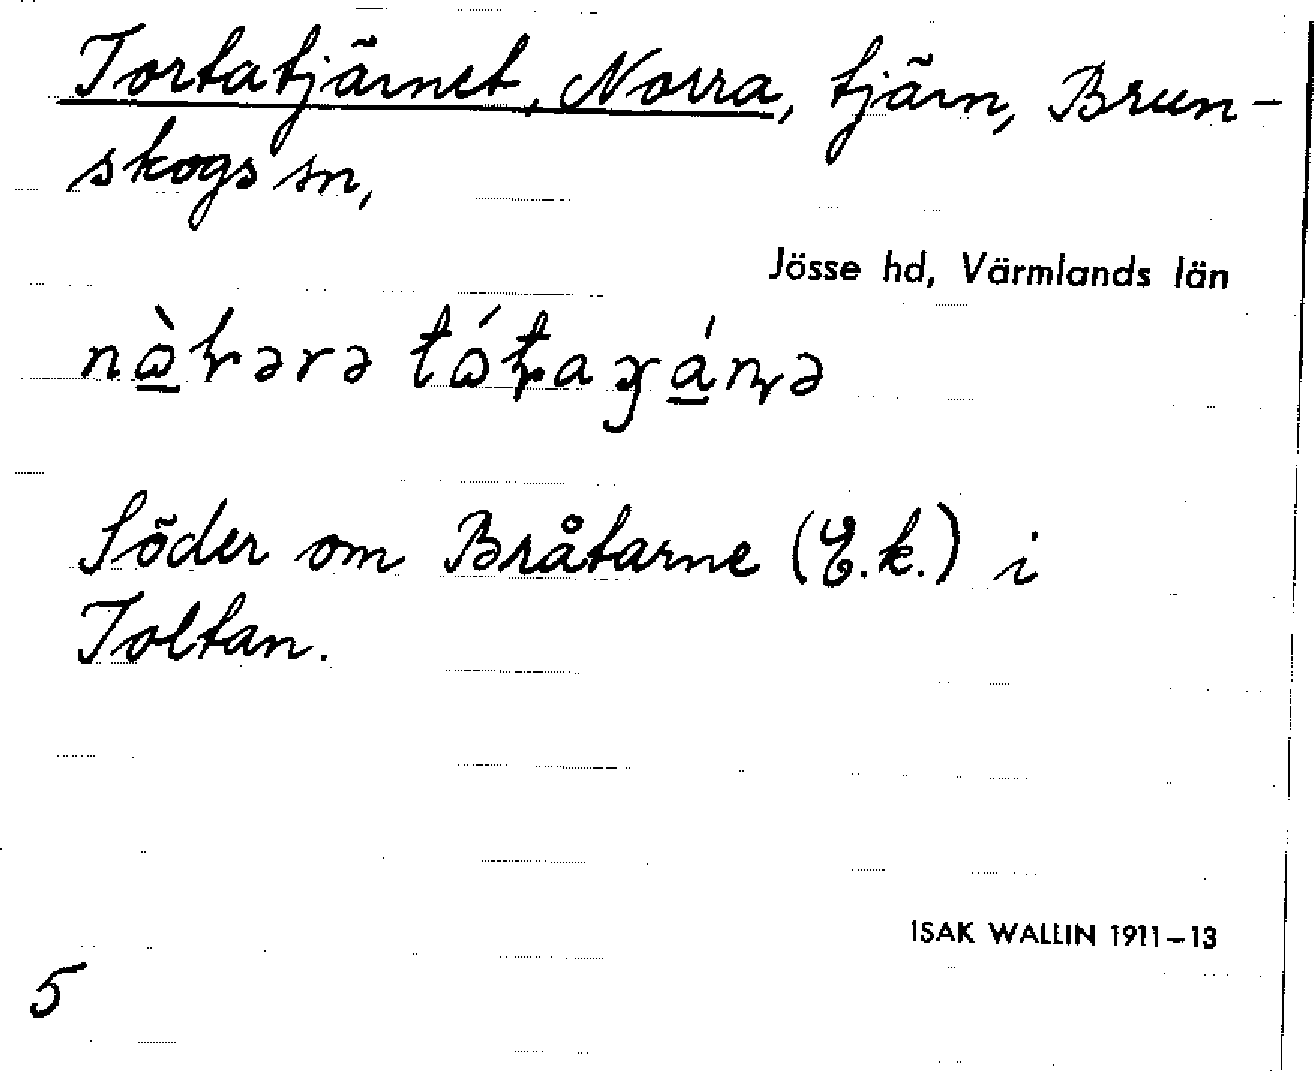 Tortatjärnet, Norra, tjärn, Brun-
skogs sn,
Jösse hd, Värmlands län
Söder om Bråtarne (E.k.) i
Toltan.
ISAK WALLIN 1911–13
5